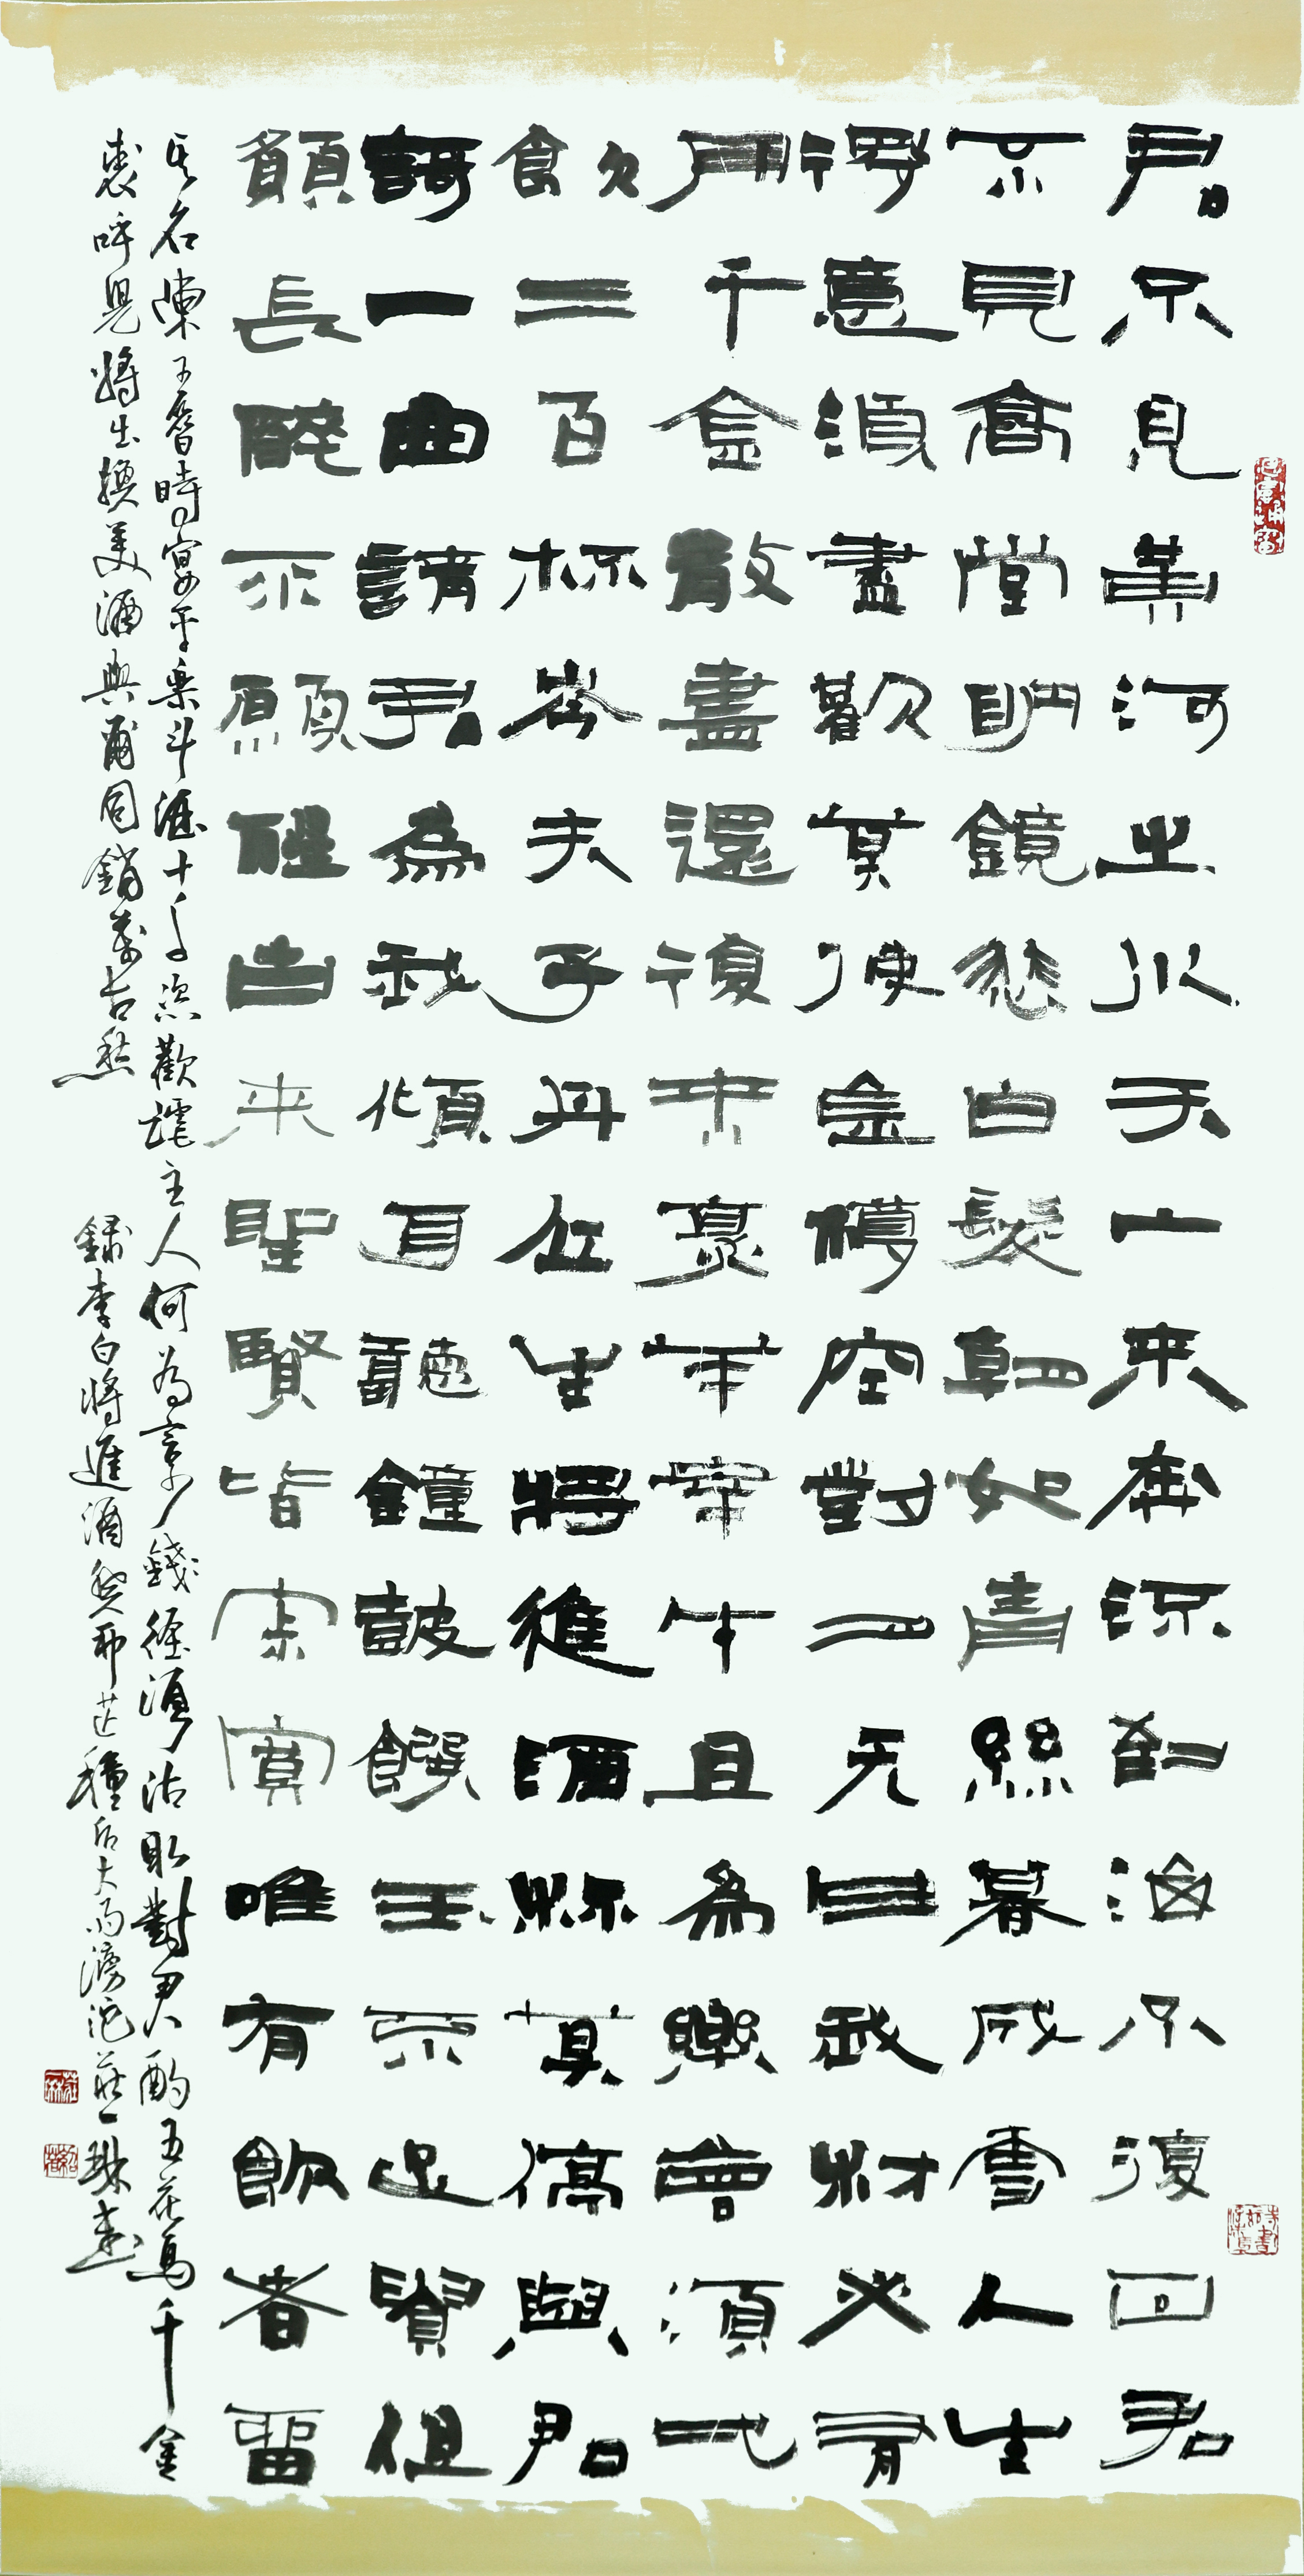 君不見黃河之水天上來奔流到海不復回君
不見高堂明鏡悲白髮朝如青絲暮成雪人生
得意須盡歡莫使金樽空對月天生我材必有
用千金散盡還復來烹羊宰牛且為樂會須一
飲三百杯岑夫子丹丘生將進酒杯莫停與君
謌一曲請君為我傾耳聽鐘鼓饌玉不足貴但
願長醉不願醒自古來聖賢皆寂寞唯有飲者留
其名陳王昔時宴平樂斗酒十千恣歡謔主人何為言少錢徑須沽取對君酌五花馬千金
裘呼兒將出換美酒與爾同銷萬古愁
錄李白將進酒癸卯芒種后大雨滂沱